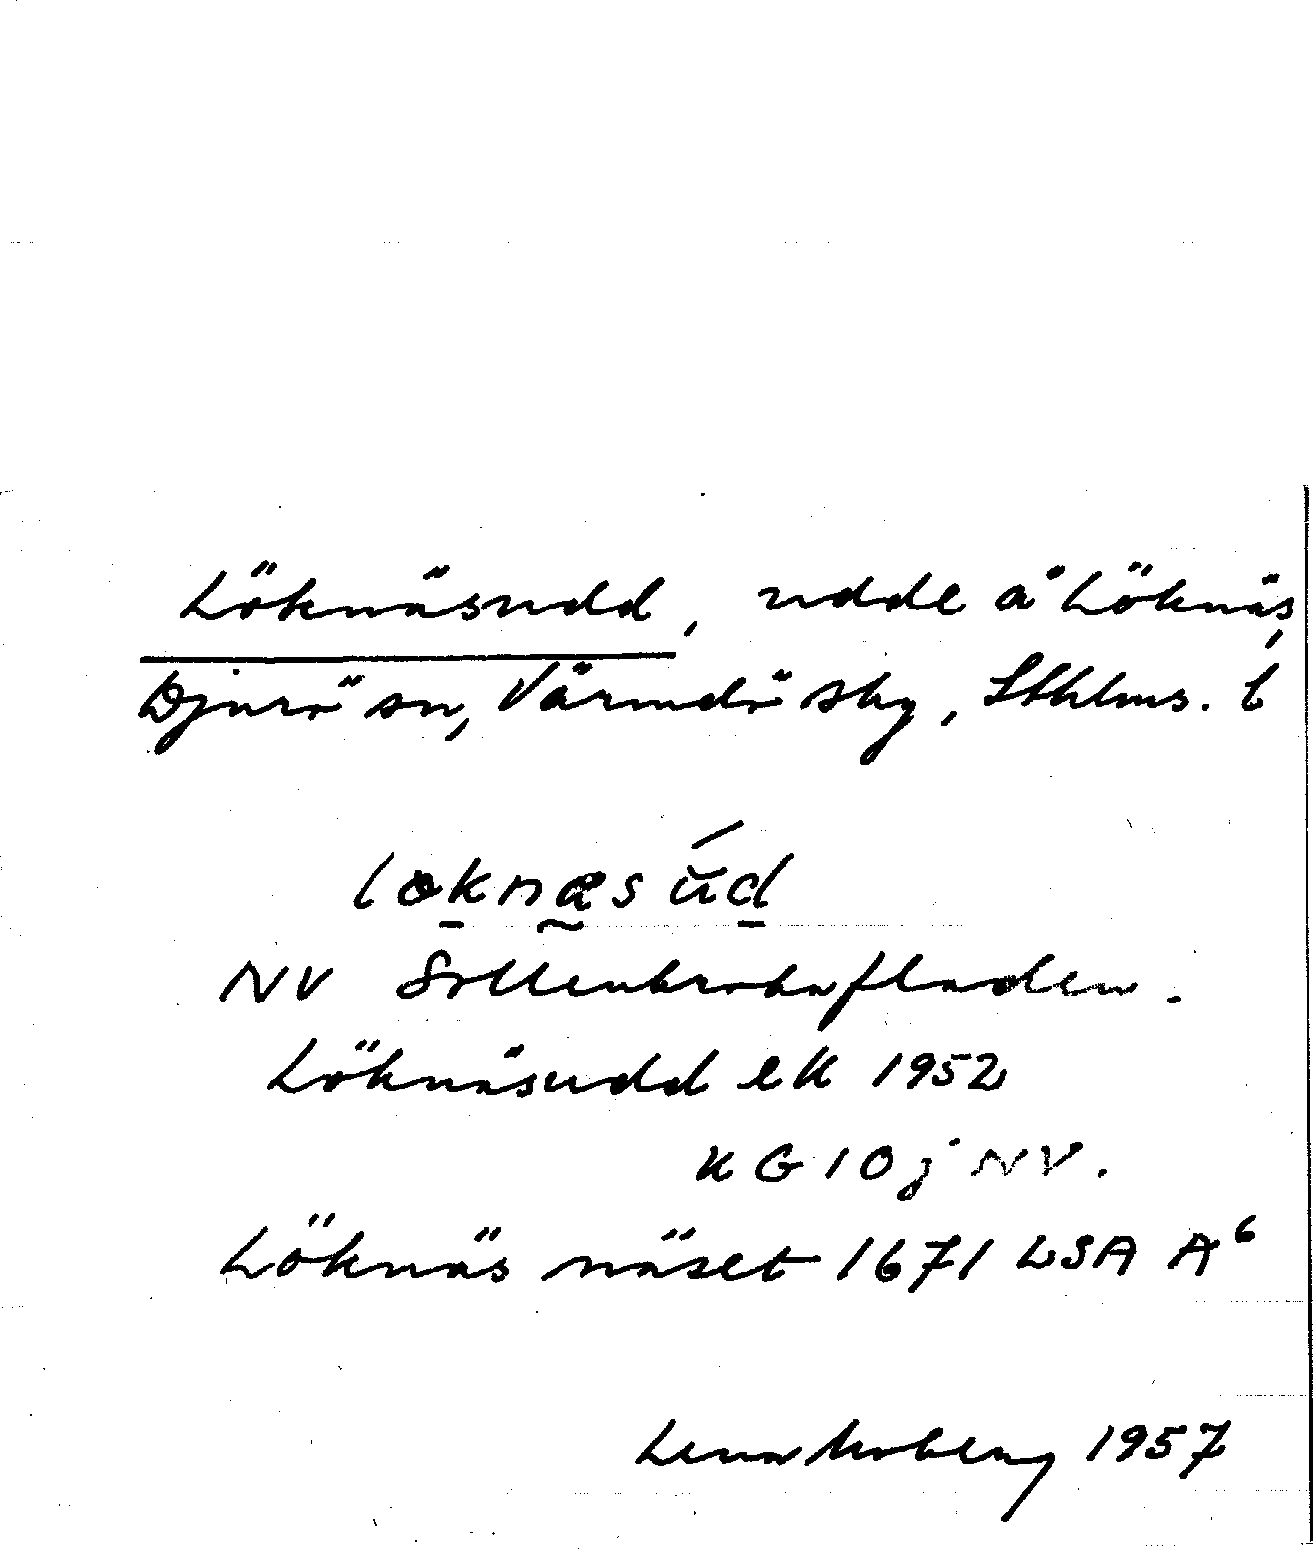 Löknäsudd, udde å Löknäs,
Djurö sn, Värmdö skg, Sthlms. l
NV Sollenkrokafladen.
Löknäsudd ek 1952
K G 10 j NV.
Löknäs näset 1671 LSA A⁶
Lena Moberg 1957